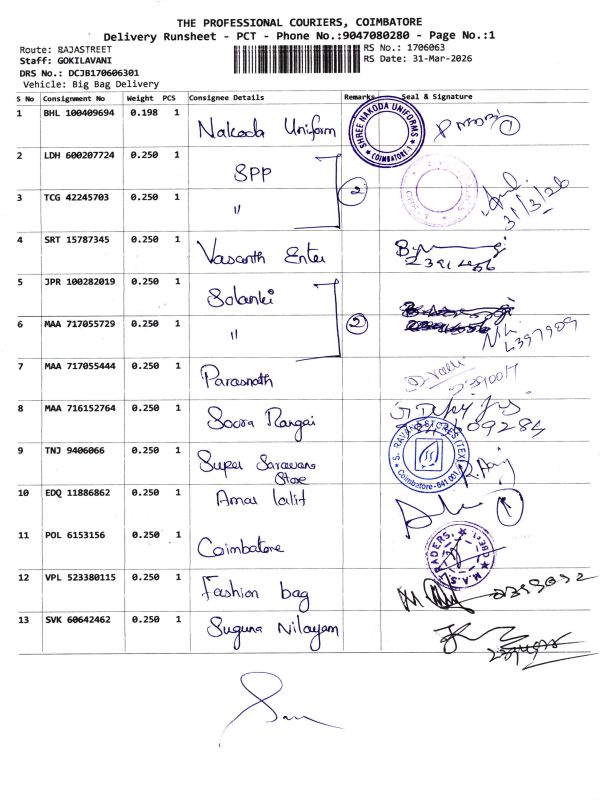 THE PROFESSIONAL COURIERS, COIMBATORE
Delivery Runsheet - PCT - Phone No.:9047080280 - Page No.:1
Route: RAJASTREET
Staff: GOKILAVANI
DRS No.: DCJB170606301
Vehicle: Big Bag Delivery
RS No.: 1706063
RS Date: 31-Mar-2026
S No Consignment No Weight PCS Consignee Details Remarks Seal & Signature
1 BHL 100409694 0.198 1 Nakoda Uniform SHREE NAKODA UNIFORMS COIMBATORE-1 1
2 LDH 600207724 0.250 1 SPP 2
3 TCG 42245703 0.250 1 " 31/3/26
4 SRT 15787345 0.250 1 Vasanth Enter
5 JPR 100282019 0.250 1 Solanki
6 MAA 717055729 0.250 1 " 2
7 MAA 717055444 0.250 1 Parasnath
8 MAA 716152764 0.250 1 Soora Rangai
9 TNJ 9406066 0.250 1 Super Saravana Store Coimbatore-641 001
10 EDQ 11886862 0.250 1 Amar lalit
11 POL 6153156 0.250 1 Coimbatore M.A.S. TRADERS, CBE-1
12 VPL 523380115 0.250 1 Fashion bag
13 SVK 60642462 0.250 1 Suguna Nilayam